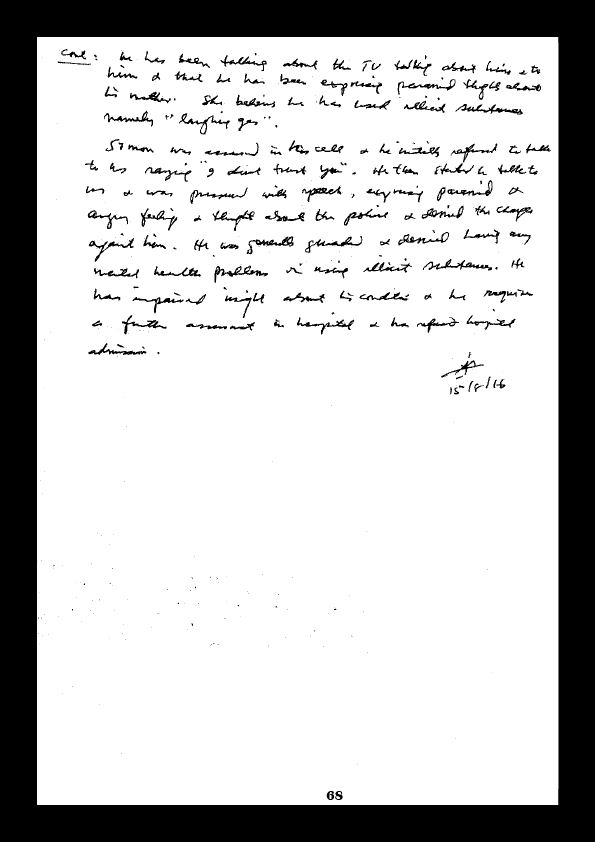 Cont: he has been talking about the TV talking about him & to
him & that he has been expressing paranoid thoughts about
his mother. She believes he has used illicit substances
namely "laughing gas".
Simon was assessed in his cell & he initially refused to talk
to us saying "I dont trust you". He then started to talk to
us & was pressured with speech, expressing paranoid &
angry feelings & thoughts about the police & denied the charges
against him. He was generally guarded & denied having any
mental health problems or using illicit substances. He
has impaired insight about his condition & he requires
a further assessment in hospital & has refused hospital
admission.
15/8/16
68